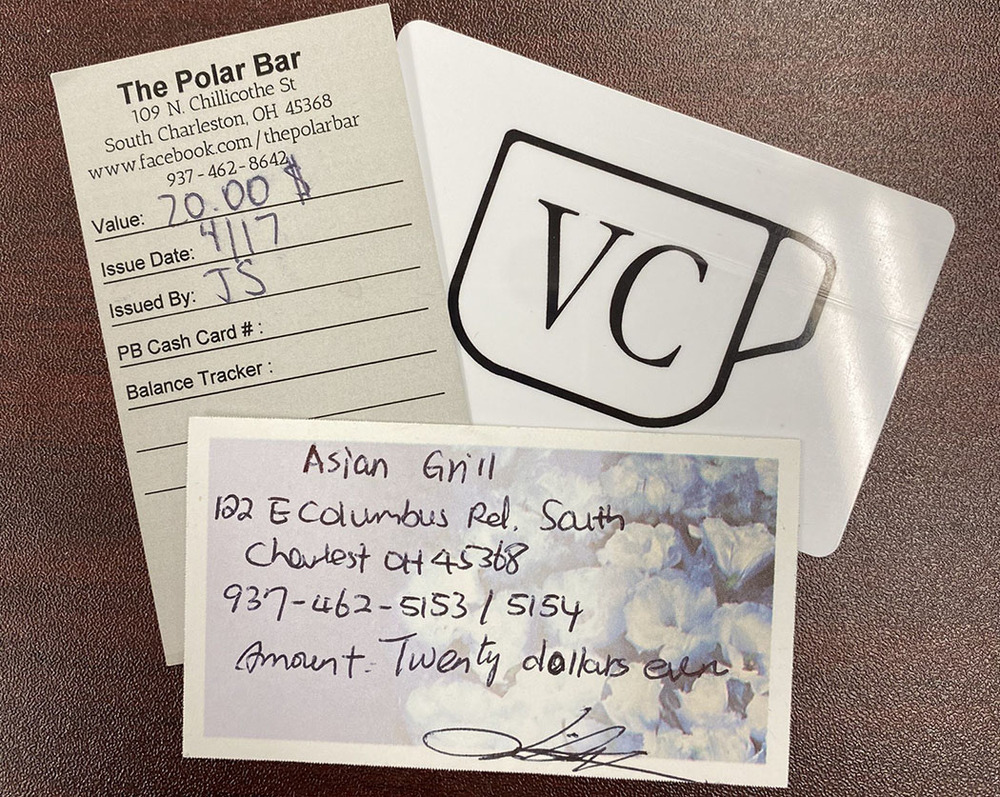 The Polar Bar
109 N. Chillicothe St
South Charleston, OH 45368
www.facebook.com/thepolarbar
937-462-8642
Value: 20.00 $
Issue Date: 4/17
Issued By: JS
PB Cash Card # :
Balance Tracker :
VC
Asian Grill
122 E Columbus Rd. South
Charlest OH 45368
937-462-5153 / 5154
Amount: Twenty dollars even